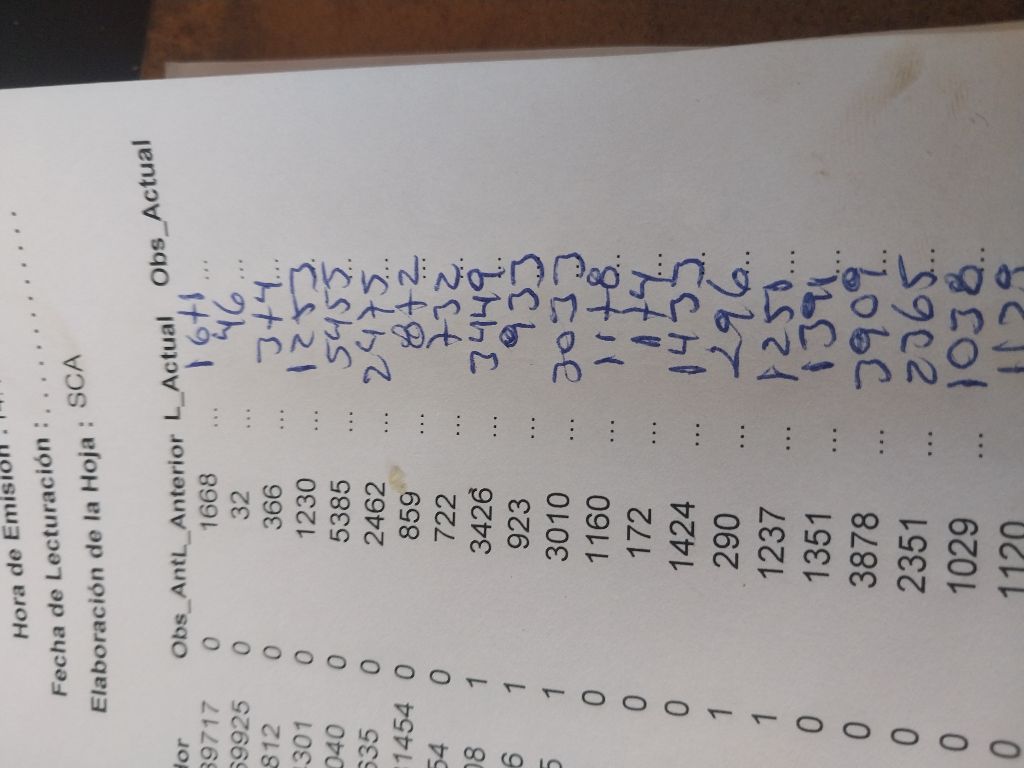 Hora de Emisión :
Fecha de Lecturación : . . . . . . . . . . . . . .
Elaboración de la Hoja : SCA
Obs_AntL_Anterior L_Actual Obs_Actual
39717 0 1668 ... 1671 ...
69925 0 32 ... 46 ...
812 0 366 ... 374 ...
301 0 1230 ... 1253 ...
040 0 5385 ... 5455 ...
635 0 2462 ... 2475 ...
1454 0 859 ... 872 ...
54 0 722 ... 732 ...
08 1 3426 ... 3449 ...
6 1 923 ... 933 ...
5 1 3010 ... 3033 ...
0 1160 ... 1178 ...
0 172 ... 174 ...
0 1424 ... 1435 ...
1 290 ... 296 ...
1 1237 ... 1250 ...
0 1351 ... ...
0 3878 ... 3909 ...
0 2351 ... 2365 ...
0 1029 ... 1038 ...
0 1120